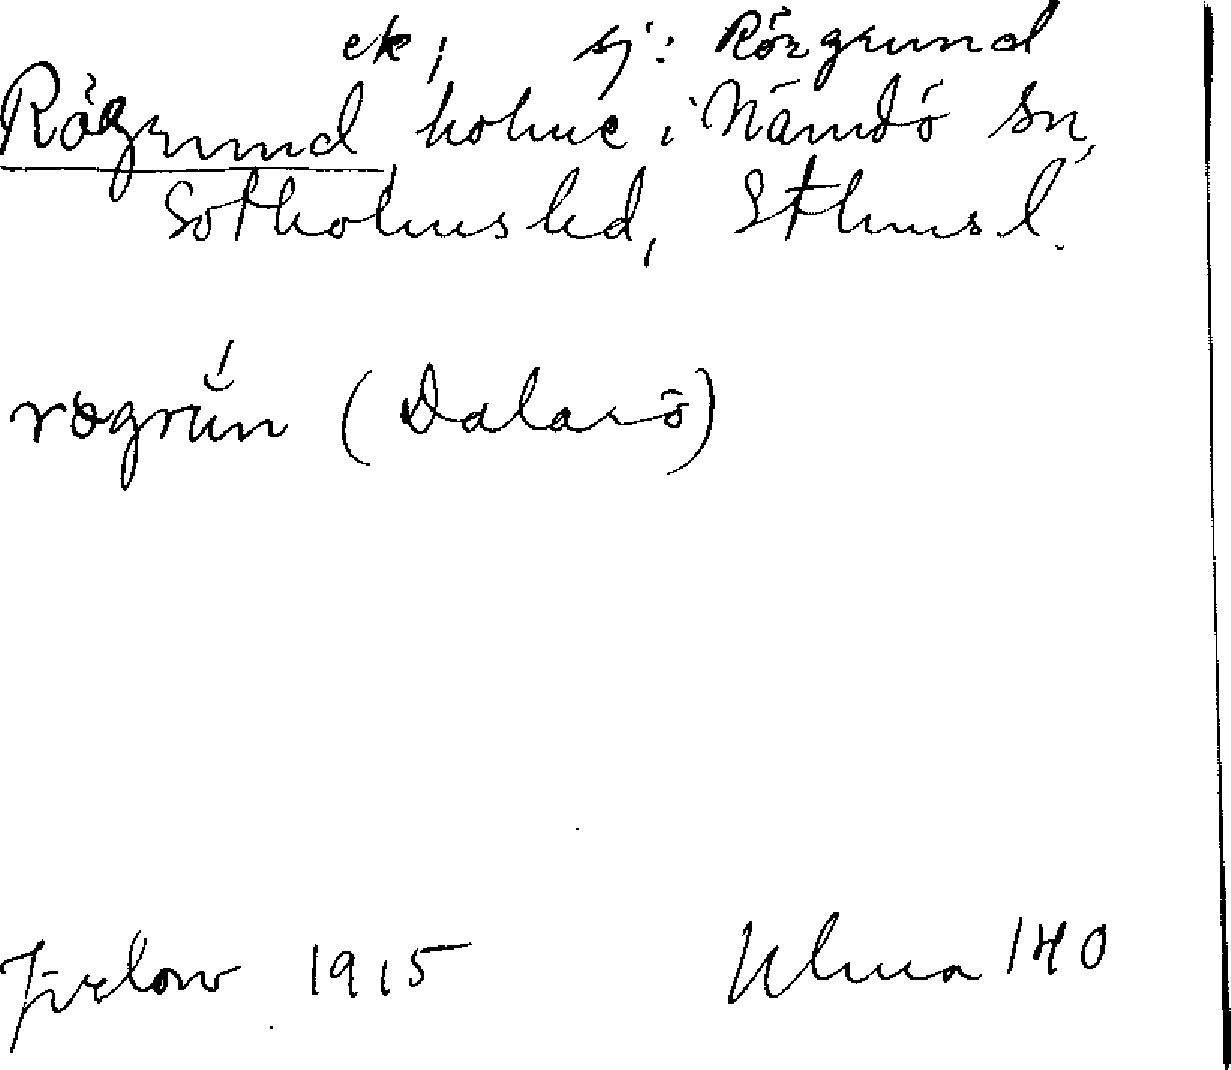 ek, sj: Rörgrund
Rögrund holme i Nämdö sn,
Sotholmsled, Sthmsl.
rögrún (Dalarö)
1915 Ulma 140